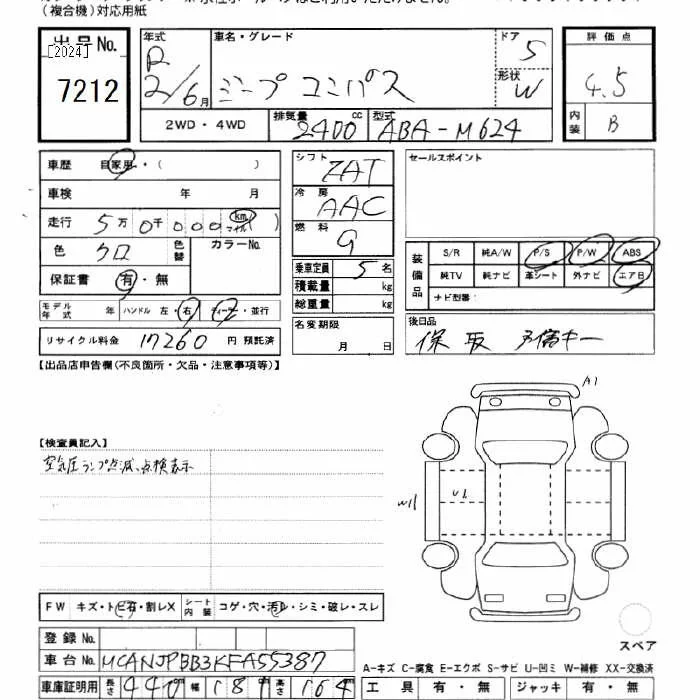 (複合機)対応用紙
出品No.
[2024]
7212
年式
R
2/6月
車名・グレード
ジープ コンパス
ドア 5
形状 W
評価点
4.5
内装 B
2WD・4WD
排気量 2400 cc
型式 ABA-M624
車歴 自家用・( )
車検 年 月
走行 5万0千000 km マイル( )
色 クロ 色替 カラーNo.
保証書 有・無
モデル年式 年 ハンドル 左・右 ディーラー・並行
リサイクル料金 17260 円 預託済
シフト ZAT
冷房 AAC
燃料 G
乗車定員 5名
積載量 kg
総重量 kg
名変期限 月 日
セールスポイント
装備品
S/R 純A/W P/S P/W ABS
純TV 純ナビ 革シート 外ナビ エアB
ナビ型番
後日品
保 取 予備キー
【出品店申告欄(不良箇所・欠品・注意事項等)】
【検査員記入】
空気圧ランプ点滅、点検表示
A1
W1
U1
FW キズ・トビ有・割レX シート内装 コゲ・穴・汚レ・シミ・破レ・スレ
スペア
登録No.
車台No. MCANJPBB3KFA55387
車庫証明用 長さ 440 幅 181 高さ 164
A-キズ C-腐食 E-エクボ S-サビ U-凹ミ W-補修 XX-交換済
工具 有・無 ジャッキ 有・無